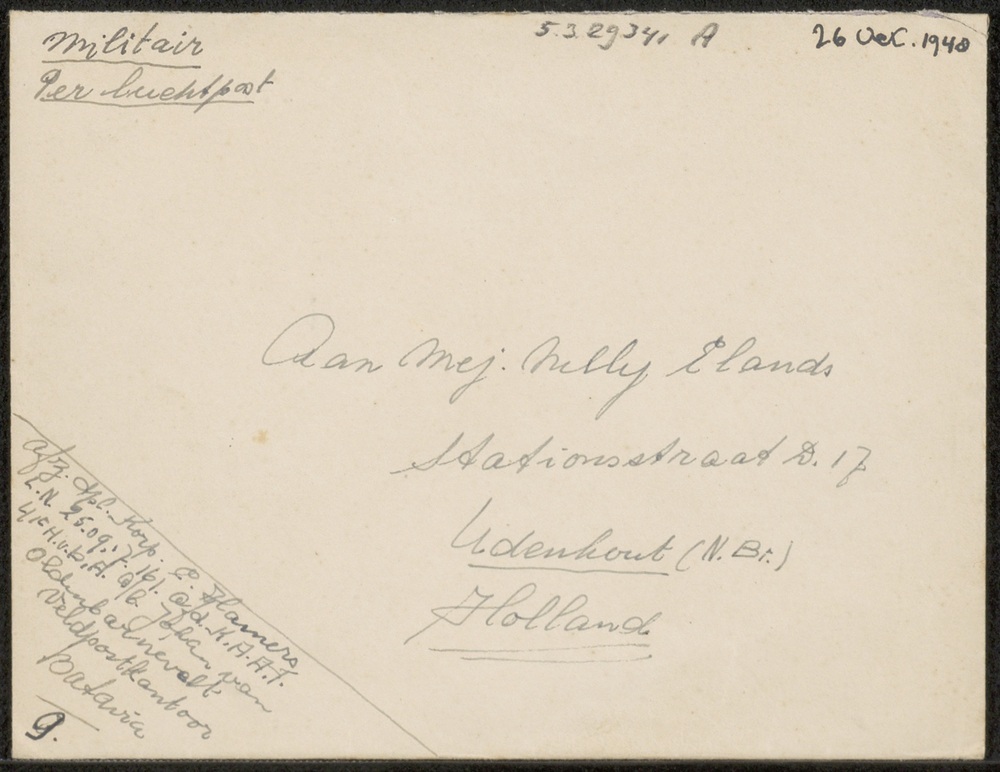 Militair
Per luchtpost
5.3.29341 A
26 Dec. 1948
Aan Mej. Nelly Elands
Stationsstraat D. 17
Udenhout (N. Br.)
Holland
afz. dpl. Korp. P. Hamers
L.N. 25.09.17.161. afd. K.A.A.T.
41e H.v.b.A. a/b Johan van
Oldenbarnevelt
Veldpostkantoor
Batavia
9.